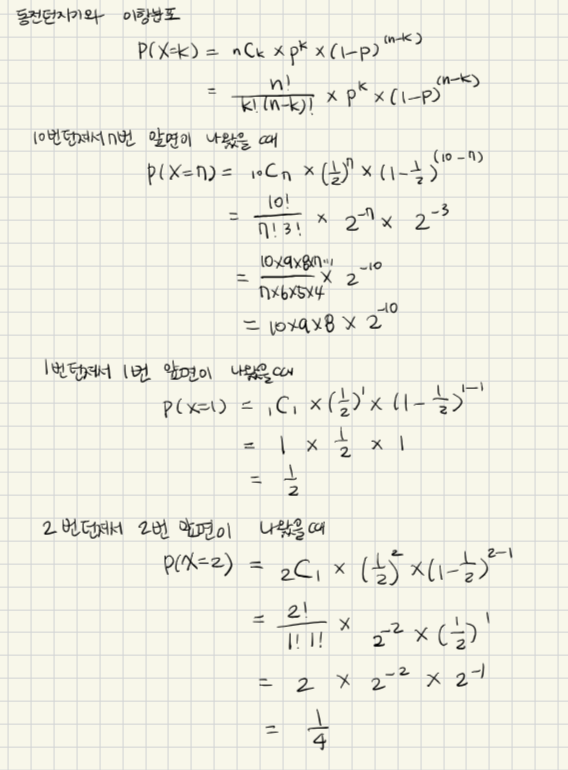 동전던지기와 이항분포
P(X=k) = nCk × p^k × (1-p)^(n-k)
= n! / k!(n-k)! × p^k × (1-p)^(n-k)
10번던져서 7번 앞면이 나왔을 때
P(X=7) = 10C7 × (1/2)^7 × (1-1/2)^(10-7)
= 10! / 7!3! × 2^-7 × 2^-3
= 10×9×8×7… / 7×6×5×4 × 2^-10
= 10×9×8 × 2^-10
1번던져서 1번 앞면이 나왔을 때
P(X=1) = 1C1 × (1/2)^1 × (1-1/2)^1-1
= 1 × 1/2 × 1
= 1/2
2번던져서 2번 앞면이 나왔을 때
P(X=2) = 2C1 × (1/2)^2 × (1-1/2)^2-1
= 2! / 1!1! × 2^-2 × (1/2)^1
= 2 × 2^-2 × 2^-1
= 1/4